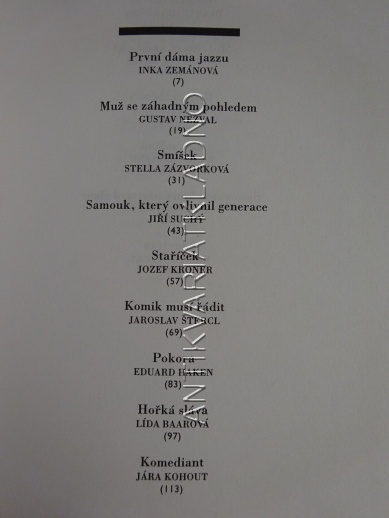 První dáma jazzu
INKA ZEMÁNOVÁ
(7)
Muž se záhadným pohledem
GUSTAV NEZVAL
(19)
Smíšek
STELLA ZÁZVORKOVÁ
(31)
Samouk, který ovlivnil generace
JIŘÍ SUCHÝ
(43)
Staříček
JOZEF KRONER
(57)
Komik musí řádit
JAROSLAV ŠTERCL
(69)
Pokora
EDUARD HAKEN
(83)
Hořká sláva
LÍDA BAAROVÁ
(97)
Komediant
JÁRA KOHOUT
(113)
ANTIKVARIATKLADNO